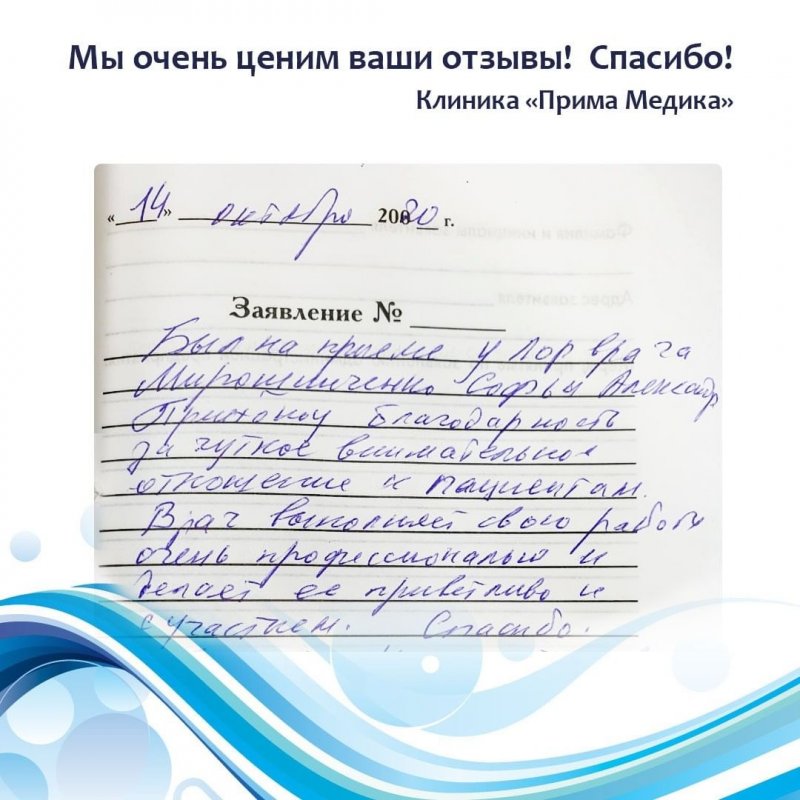 Мы очень ценим ваши отзывы! Спасибо!
Клиника «Прима Медика»
« 14 » октября 2020 г.
Заявление №
Был на приеме у лор врача
Мирошниченко Софьи Александр
Приношу благодарность
за чуткое внимательное
отношение к пациентам.
Врач выполняет свою работу
очень профессионально и
делает ее приветливо и
с участием. Спасибо.